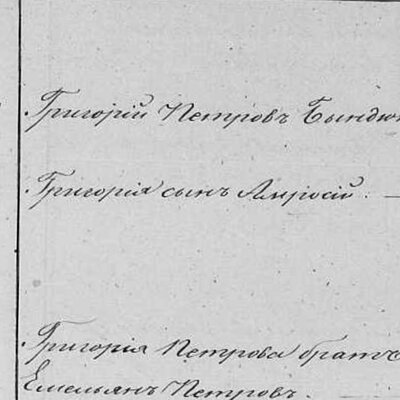 Григорій Петровъ Бындю
Григорія сынъ Амросій. —
Григорія Петрова братъ
Емельянъ Петровъ.